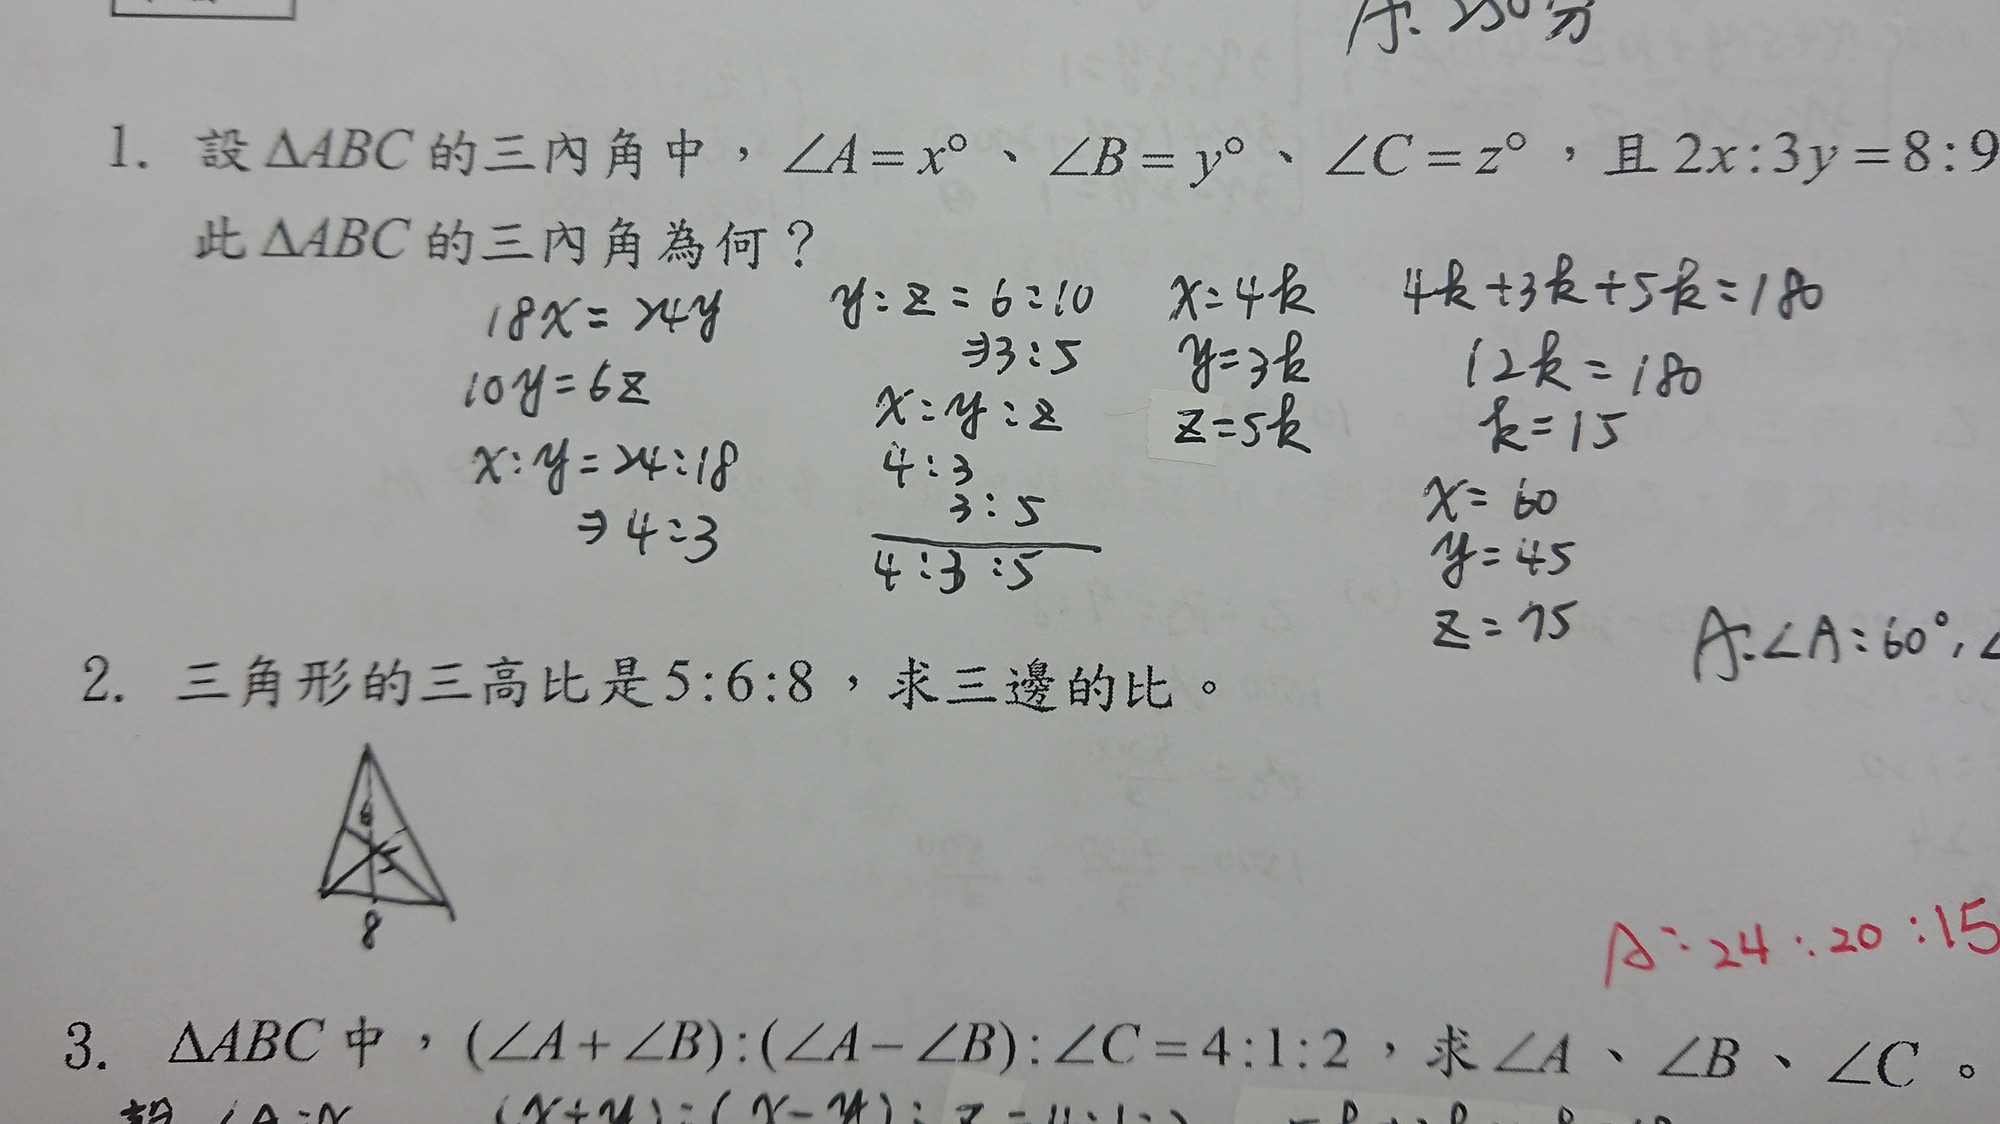 A: 250分
1. 設ΔABC的三內角中，∠A=x°、∠B=y°、∠C=z°，且2x:3y=8:9
此ΔABC的三內角為何？
18x=24y
10y=6z
x:y=24:18
⇒4:3
y:z=6:10
⇒3:5
x:y:z
4:3
3:5
4:3:5
x=4k
y=3k
z=5k
4k+3k+5k=180
12k=180
k=15
x=60
y=45
z=75
A:∠A:60°,∠
2. 三角形的三高比是5:6:8，求三邊的比。
6
5
8
A:24:20:15
3. ΔABC中，(∠A+∠B):(∠A-∠B):∠C=4:1:2，求∠A、∠B、∠C。